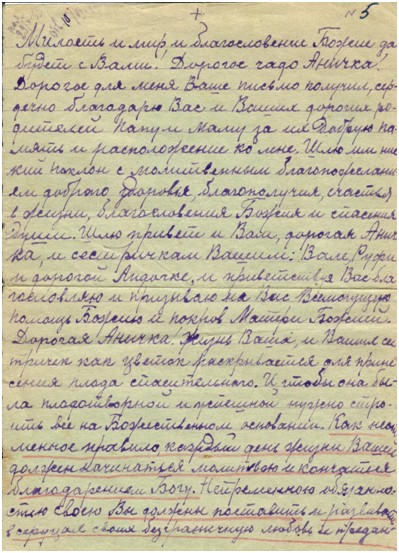 +
№ 5
Милость и мир и благословение Божие да
будет с Вами! Дорогое чадо Аничка!
Дорогое для меня Ваше письмо получил, сер-
дечно благодарю Вас и Ваших дорогих ро-
дителей Папу и Маму за их добрую па-
мять и расположение ко мне. Шлю им низ-
кий поклон с молитвенным благопожелани-
ем доброго здоровья, благополучия, счастья
в жизни, благословения Божия и спасения
души. Шлю привет и Вам, дорогая Анич-
ка, и сестричкам Вашим: Вале, Руфи
и дорогой Лидочке, и приветствуя Вас бла-
гословляю и призываю на Вас Всемогущую
помощь Божию и покров Матери Божией.
Дорогая Аничка! Жизнь Ваша, и Ваших сес-
тричек как цветок раскрывается для прине-
сения плода спасительного. И чтобы она бы-
ла плодотворной и успешной нужно стро-
ить всё на Божественном основании. Как неот
менное правило, каждый день жизни Вашей
должен начинаться молитвою и кончаться
благодарением Богу. Непременною обязанно-
стью своею Вы должны поставить и развивать
в сердцах своих безграничную любовь и предан-